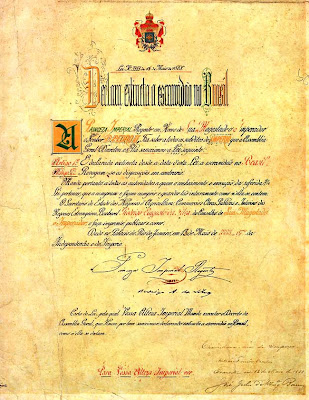 Lei N. 3353 de 13 de Maio de 1888
Declara extincta a escravidão no Brasil
A PRINCEZA IMPERIAL Regente em Nome de Sua Magestade o Imperador
o Senhor D. Pedro II, Faz saber a todos os subditos do Imperio que a Assembléa
Geral Decretou e Ella sanccionou a Lei seguinte:
Artigo 1º É declarada extincta desde a data desta Lei a escravidão no Brasil
Artigo 2º Revogam-se as disposições em contrario.
Manda portanto a todas as autoridades a quem o conhecimento e execução da referida Lei
pertencer, que a cumpram e façam cumprir e guardar tão inteiramente como n'ella se contém.
O Secretario de Estado dos Negocios d'Agricultura, Commercio e Obras Publicas e Interino dos
Negocios Estrangeiros, Bacharel Rodrigo Augusto da Silva do Conselho de Sua Magestade
o Imperador, o faça imprimir, publicar e correr.
Dado no Palacio do Rio de Janeiro, em 13 de Maio de 1888, 67º da
Independencia e do Imperio.
Princeza Imperial Regente
Rodrigo A. da Silva
Carta de Lei, pela qual Vossa Alteza Imperial Manda executar o Decreto da
Assembléa Geral, que Houve por bem sanccionar declarando extincta a escravidão no Brasil,
como n'ella se declara.
Para Vossa Alteza Imperial ver